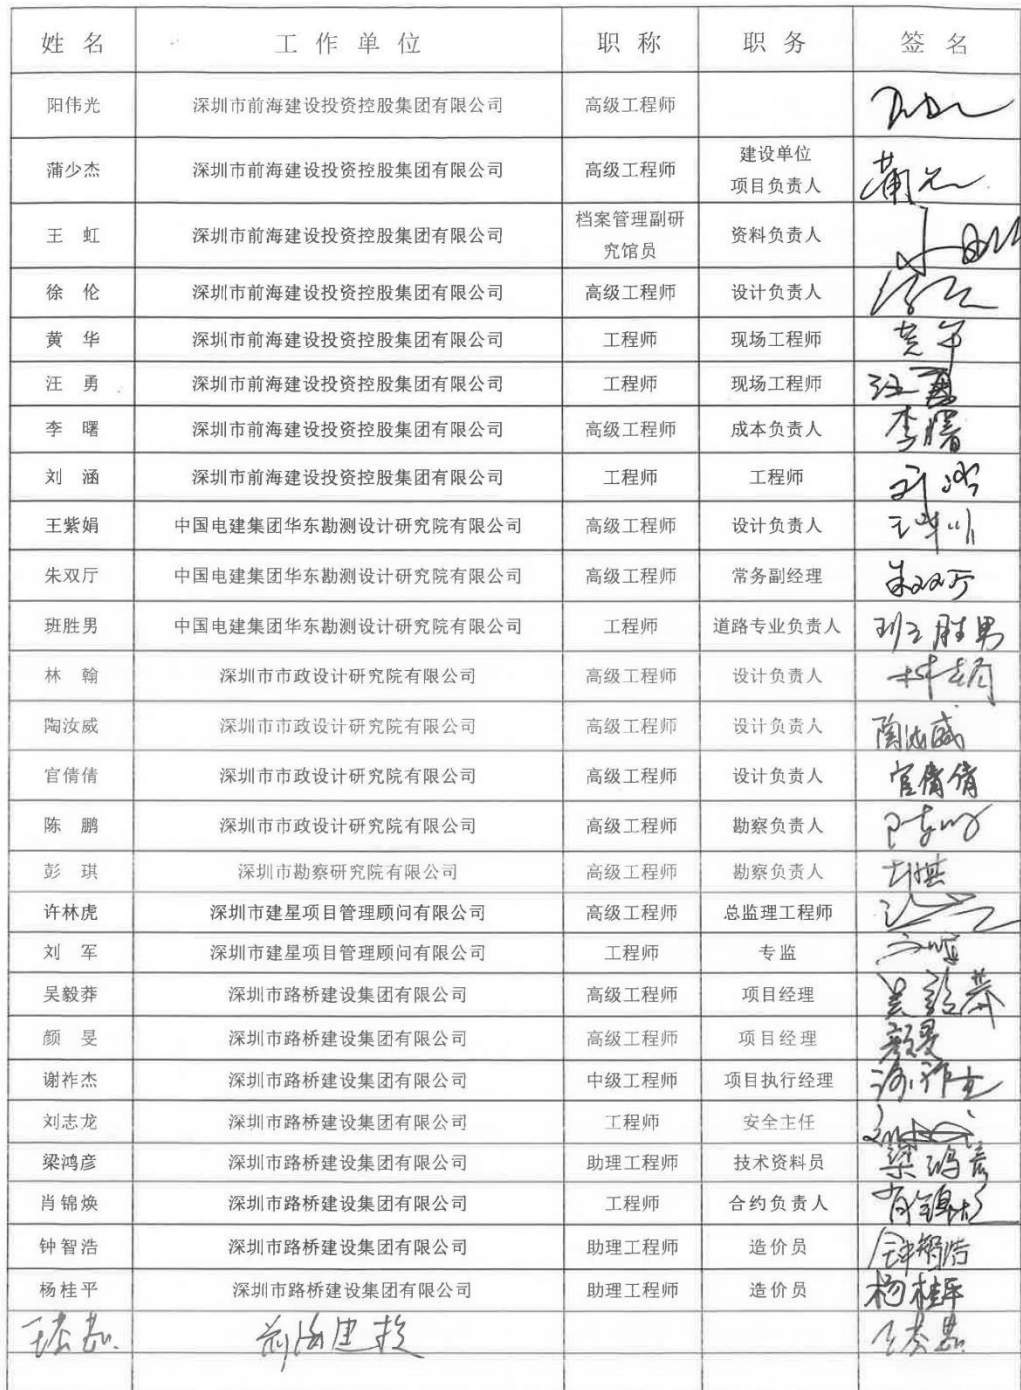 姓 名 工 作 单 位 职 称 职 务 签 名
阳伟光 深圳市前海建设投资控股集团有限公司 高级工程师
蒲少杰 深圳市前海建设投资控股集团有限公司 高级工程师 建设单位
项目负责人
王 虹 深圳市前海建设投资控股集团有限公司 档案管理副研
究馆员 资料负责人
徐 伦 深圳市前海建设投资控股集团有限公司 高级工程师 设计负责人
黄 华 深圳市前海建设投资控股集团有限公司 工程师 现场工程师
汪 勇 深圳市前海建设投资控股集团有限公司 工程师 现场工程师 汪勇
李 曙 深圳市前海建设投资控股集团有限公司 高级工程师 成本负责人 李曙
刘 涵 深圳市前海建设投资控股集团有限公司 工程师 工程师
王紫娟 中国电建集团华东勘测设计研究院有限公司 高级工程师 设计负责人
朱双厅 中国电建集团华东勘测设计研究院有限公司 高级工程师 常务副经理 朱双厅
班胜男 中国电建集团华东勘测设计研究院有限公司 工程师 道路专业负责人 班胜男
林 翰 深圳市市政设计研究院有限公司 高级工程师 设计负责人
陶汝威 深圳市市政设计研究院有限公司 高级工程师 设计负责人 陶汝威
官倩倩 深圳市市政设计研究院有限公司 高级工程师 设计负责人 官倩倩
陈 鹏 深圳市市政设计研究院有限公司 高级工程师 勘察负责人
彭 琪 深圳市勘察研究院有限公司 高级工程师 勘察负责人
许林虎 深圳市建星项目管理顾问有限公司 高级工程师 总监理工程师
刘 军 深圳市建星项目管理顾问有限公司 工程师 专监
吴毅莽 深圳市路桥建设集团有限公司 高级工程师 项目经理 吴毅莽
颜 旻 深圳市路桥建设集团有限公司 高级工程师 项目经理 颜旻
谢祚杰 深圳市路桥建设集团有限公司 中级工程师 项目执行经理 谢祚杰
刘志龙 深圳市路桥建设集团有限公司 工程师 安全主任
梁鸿彦 深圳市路桥建设集团有限公司 助理工程师 技术资料员 梁鸿彦
肖锦焕 深圳市路桥建设集团有限公司 工程师 合约负责人 肖锦焕
钟智浩 深圳市路桥建设集团有限公司 助理工程师 造价员 钟智浩
杨桂平 深圳市路桥建设集团有限公司 助理工程师 造价员 杨桂平
前海建投